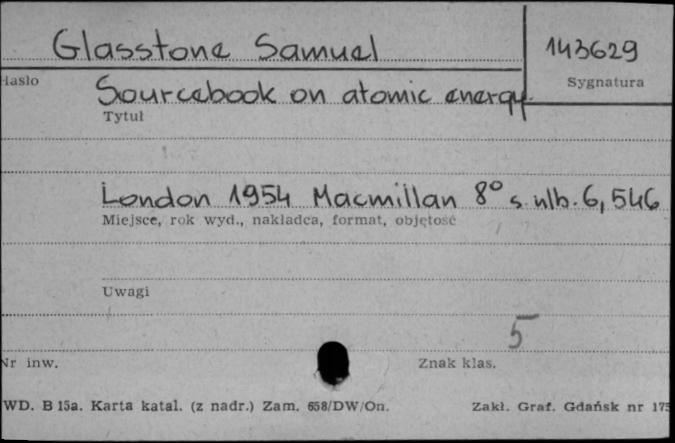 Glasstone Samuel
143629
Hasło
Sygnatura
Sourcebook on atomic energy.
Tytuł
London 1954 Macmillan 8° s. nlb. 6, 546
Miejsce, rok wyd., nakładca, format, objętość
Uwagi
5
Nr inw.
Znak klas.
WD. B 15a. Karta katal. (z nadr.) Zam. 658/DW/On.
Zakł. Graf. Gdańsk nr 175